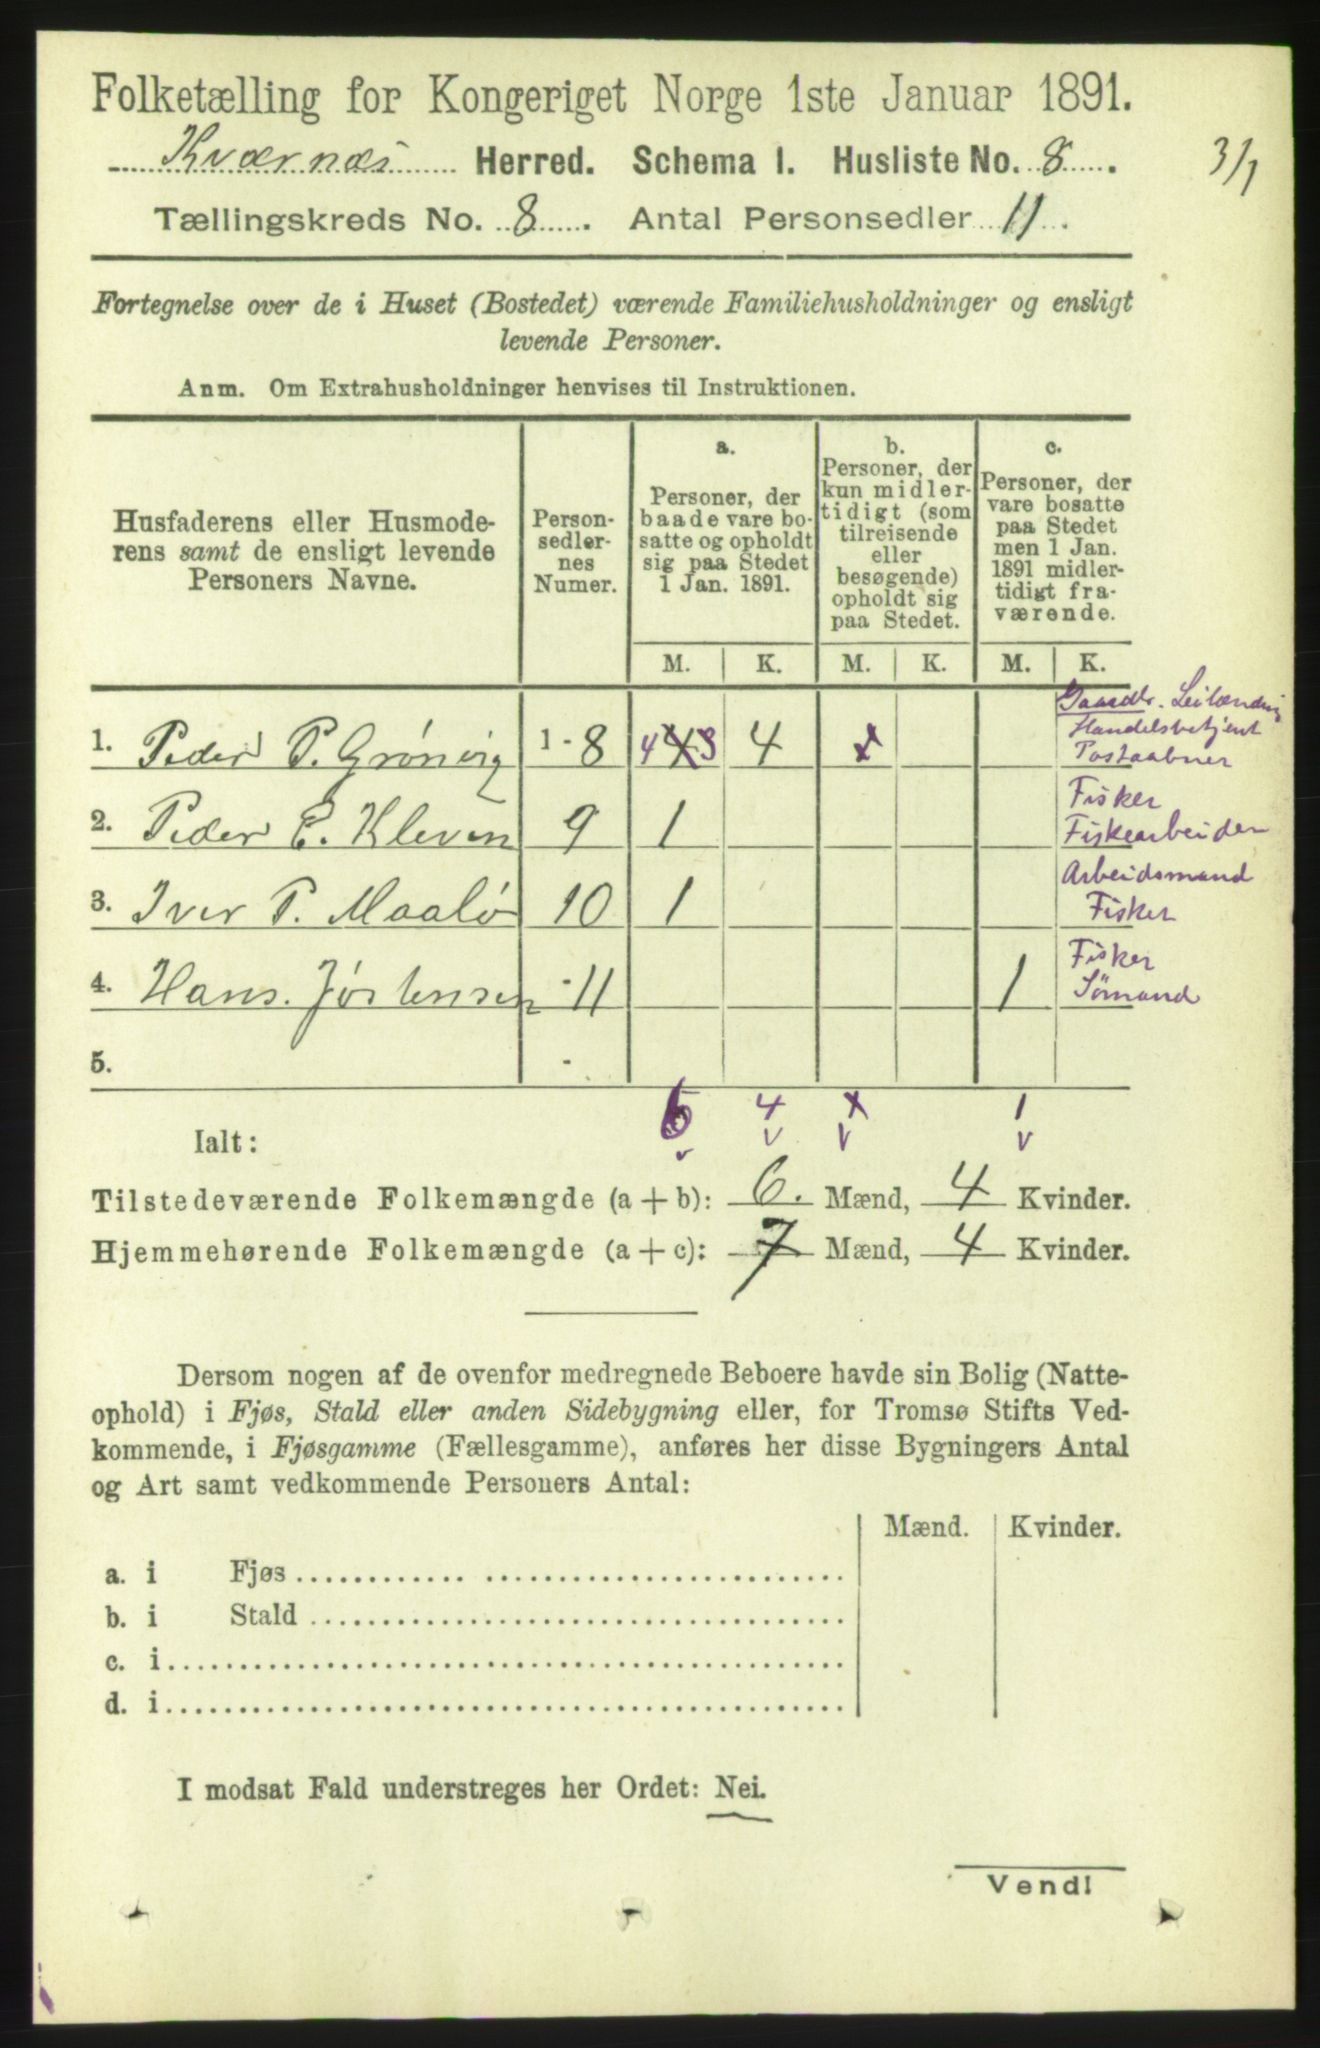 Folketælling for Kongeriget Norge 1ste Januar 1891.
Kværnæs Herred. Schema 1. Husliste No. 8.
3/1
Tællingskreds No. 8. Antal Personsedler 11.
Fortegnelse over de i Huset (Bostedet) værende Familiehusholdninger og ensligt
levende Personer.
Anm. Om Extrahusholdninger henvises til Instruktionen.
Husfaderens eller Husmode-
rens samt de ensligt levende
Personers Navne.
Person-
sedler-
nes
Numer.
a.
Personer, der
baade vare bo-
satte og opholdt
sig paa Stedet
1 Jan. 1891.
b.
Personer, der
kun midler-
tidigt (som
tilreisende
eller
besøgende)
opholdt sig
paa Stedet.
c.
Personer, der
vare bosatte
paa Stedet
men 1 Jan.
1891 midler-
tidigt fra-
værende.
M. K. M. K. M. K.
Gaardbr. Leilænding
Handelsbetjent
Postaabner
1. Peder P. Grønvig 1 - 8 4 4 3 4
Fisker
Fiskearbeider
2. Peder E. Kleven 9 1
Arbeidsmand
Fisker
3. Iver P. Maalø 10 1
Fisker
Sømand
4. Hans. Jørgensen - 11 1
5. -
6 4 x 1
v v v v
Ialt:
Tilstedeværende Folkemængde (a + b): 6. Mænd, 4 Kvinder.
Hjemmehørende Folkemængde (a + c): 7 Mænd, 4 Kvinder.
Dersom nogen af de ovenfor medregnede Beboere havde sin Bolig (Natte-
ophold) i Fjøs, Stald eller anden Sidebygning eller, for Tromsø Stifts Ved-
kommende, i Fjøsgamme (Fællesgamme), anføres her disse Bygningers Antal
og Art samt vedkommende Personers Antal:
Mænd. Kvinder.
a. i Fjøs
b. i Stald
c. i
d. i
I modsat Fald understreges her Ordet: Nei.
Vend!